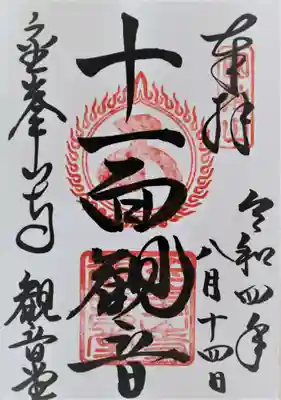 奉拝
令和四年
八月十四日
十一面観音
金峯山寺
観音堂